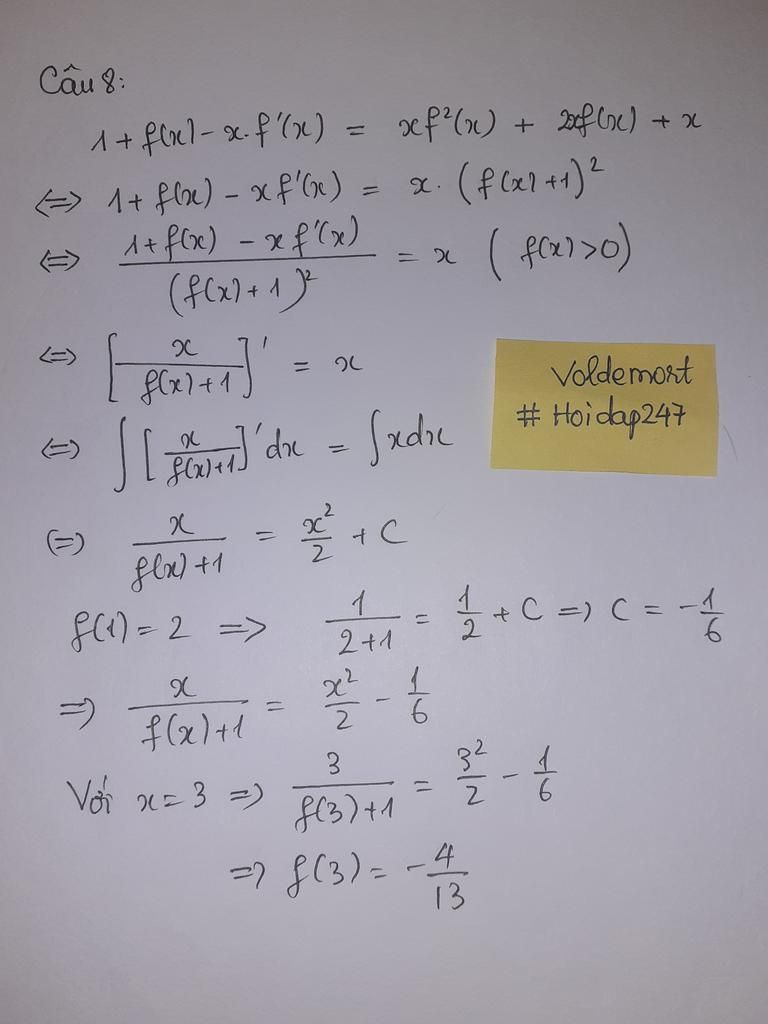 Câu 8:
1 + f(x) - x.f'(x) = xf²(x) + 2xf(x) + x
⇔ 1 + f(x) - xf'(x) = x.(f(x)+1)²
⇔ (1+f(x) - xf'(x))/(f(x)+1)² = x (f(x)>0)
⇔ [x/(f(x)+1)]' = x
Voldemort
# Hoidap247
⇔ ∫[x/(f(x)+1)]'dx = ∫xdx
⇔ x/(f(x)+1) = x²/2 + C
f(1) = 2 => 1/(2+1) = 1/2 + C => C = -1/6
=> x/(f(x)+1) = x²/2 - 1/6
Với x = 3 => 3/(f(3)+1) = 3²/2 - 1/6
=> f(3) = -4/13